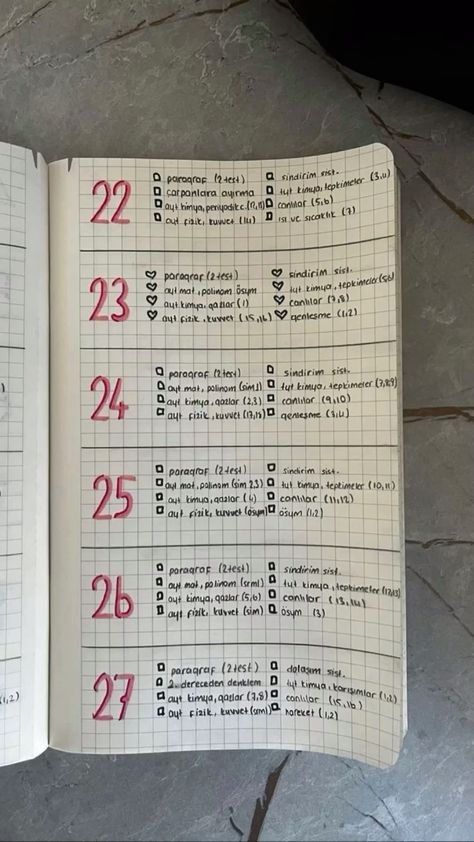 22
paragraf (2 test)
çarpanlara ayırma
ayt kimya, periyodik c.
ayt fizik, kuvvet (14)
sindirim sist.
tyt kimya, tepkimeler (3,4)
canlılar (5,6)
ısı ve sıcaklık (7)
23
paragraf (2 test)
ayt mat, polinom ösym
ayt kimya, gazlar (1)
ayt fizik, kuvvet (15,16)
sindirim sist.
tyt kimya, tepkimeler (5,6)
canlılar (7,8)
genleşme (1,2)
24
paragraf (2 test)
ayt mat, polinom (sim1)
ayt kimya, gazlar (2,3)
ayt fizik, kuvvet (17,18)
sindirim sist.
tyt kimya, tepkimeler (7,8,9)
canlılar (9,10)
genleşme (3,4)
25
paragraf (2 test)
ayt mat, polinom (sim 2,3)
ayt kimya, gazlar (4)
ayt fizik, kuvvet (ösym)
sindirim sist.
tyt kimya, tepkimeler (10,11)
canlılar (11,12)
ösym (1,2)
26
paragraf (2 test)
ayt mat, polinom (srml)
ayt kimya, gazlar (5,6)
ayt fizik, kuvvet (sim)
sindirim sist.
tyt kimya, tepkimeler (12,13)
canlılar (13,14)
ösym (3)
27
paragraf (2 test)
2. dereceden denklem
ayt kimya, gazlar (7,8)
ayt fizik, kuvvet (srml)
dolaşım sist.
tyt kimya, karışımlar (1,2)
canlılar (15,16)
hareket (1,2)